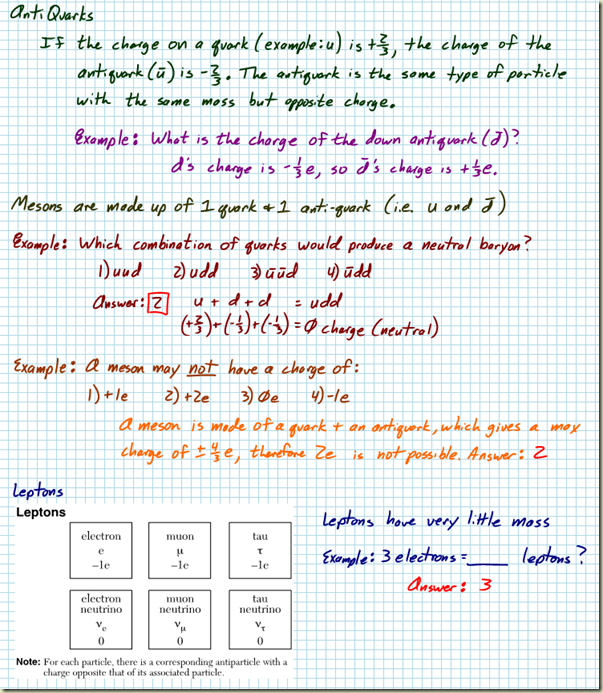 Anti Quarks
If the charge on a quark (example: u) is +2/3, the charge of the
antiquark (ū) is -2/3. The antiquark is the same type of particle
with the same mass but opposite charge.
Example: What is the charge of the down antiquark (d̄)?
d's charge is -1/3e, so d̄'s charge is +1/3e.
Mesons are made up of 1 quark + 1 anti-quark (i.e. u and d̄)
Example: Which combination of quarks would produce a neutral baryon?
1) uud 2) udd 3) ūūd 4) ūdd
Answer: 2 u + d + d = udd
(+2/3)+(-1/3)+(-1/3) = Ø charge (neutral)
Example: A meson may not have a charge of:
1) +1e 2) +2e 3) Øe 4) -1e
A meson is made of a quark + an antiquark, which gives a max
charge of ± 4/3 e, therefore 2e is not possible. Answer: 2
Leptons
Leptons
electron muon tau
e μ τ
-1e -1e -1e
electron neutrino muon neutrino tau neutrino
νe νμ ντ
0 0 0
Note: For each particle, there is a corresponding antiparticle with a
charge opposite that of its associated particle.
Leptons have very little mass
Example: 3 electrons = ____ leptons?
Answer: 3